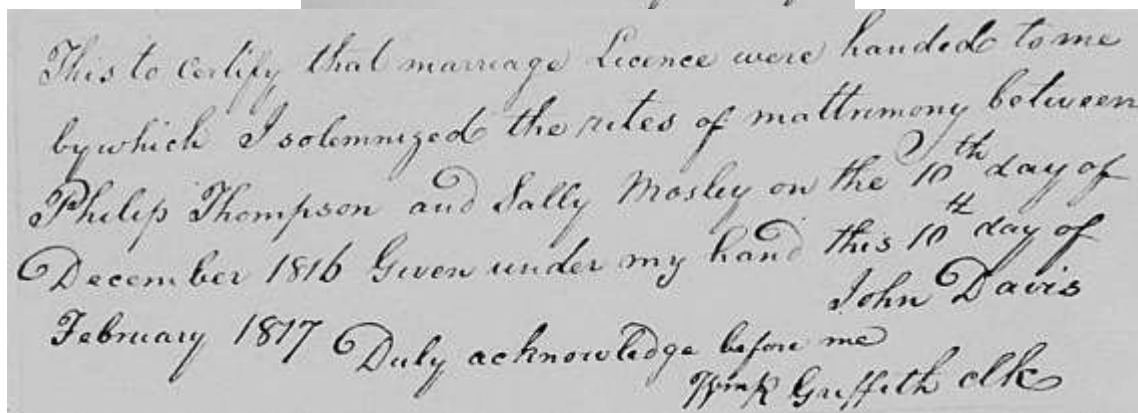 This to certify that marriage Licence were handed to me
by which I solemnized the rites of mattrimony between
Philip Thompson and Sally Mosley on the 10th day of
December 1816 Given under my hand this 10th day of
John Davis
February 1817 Duly acknowledge before me
Wm R Griffith clk